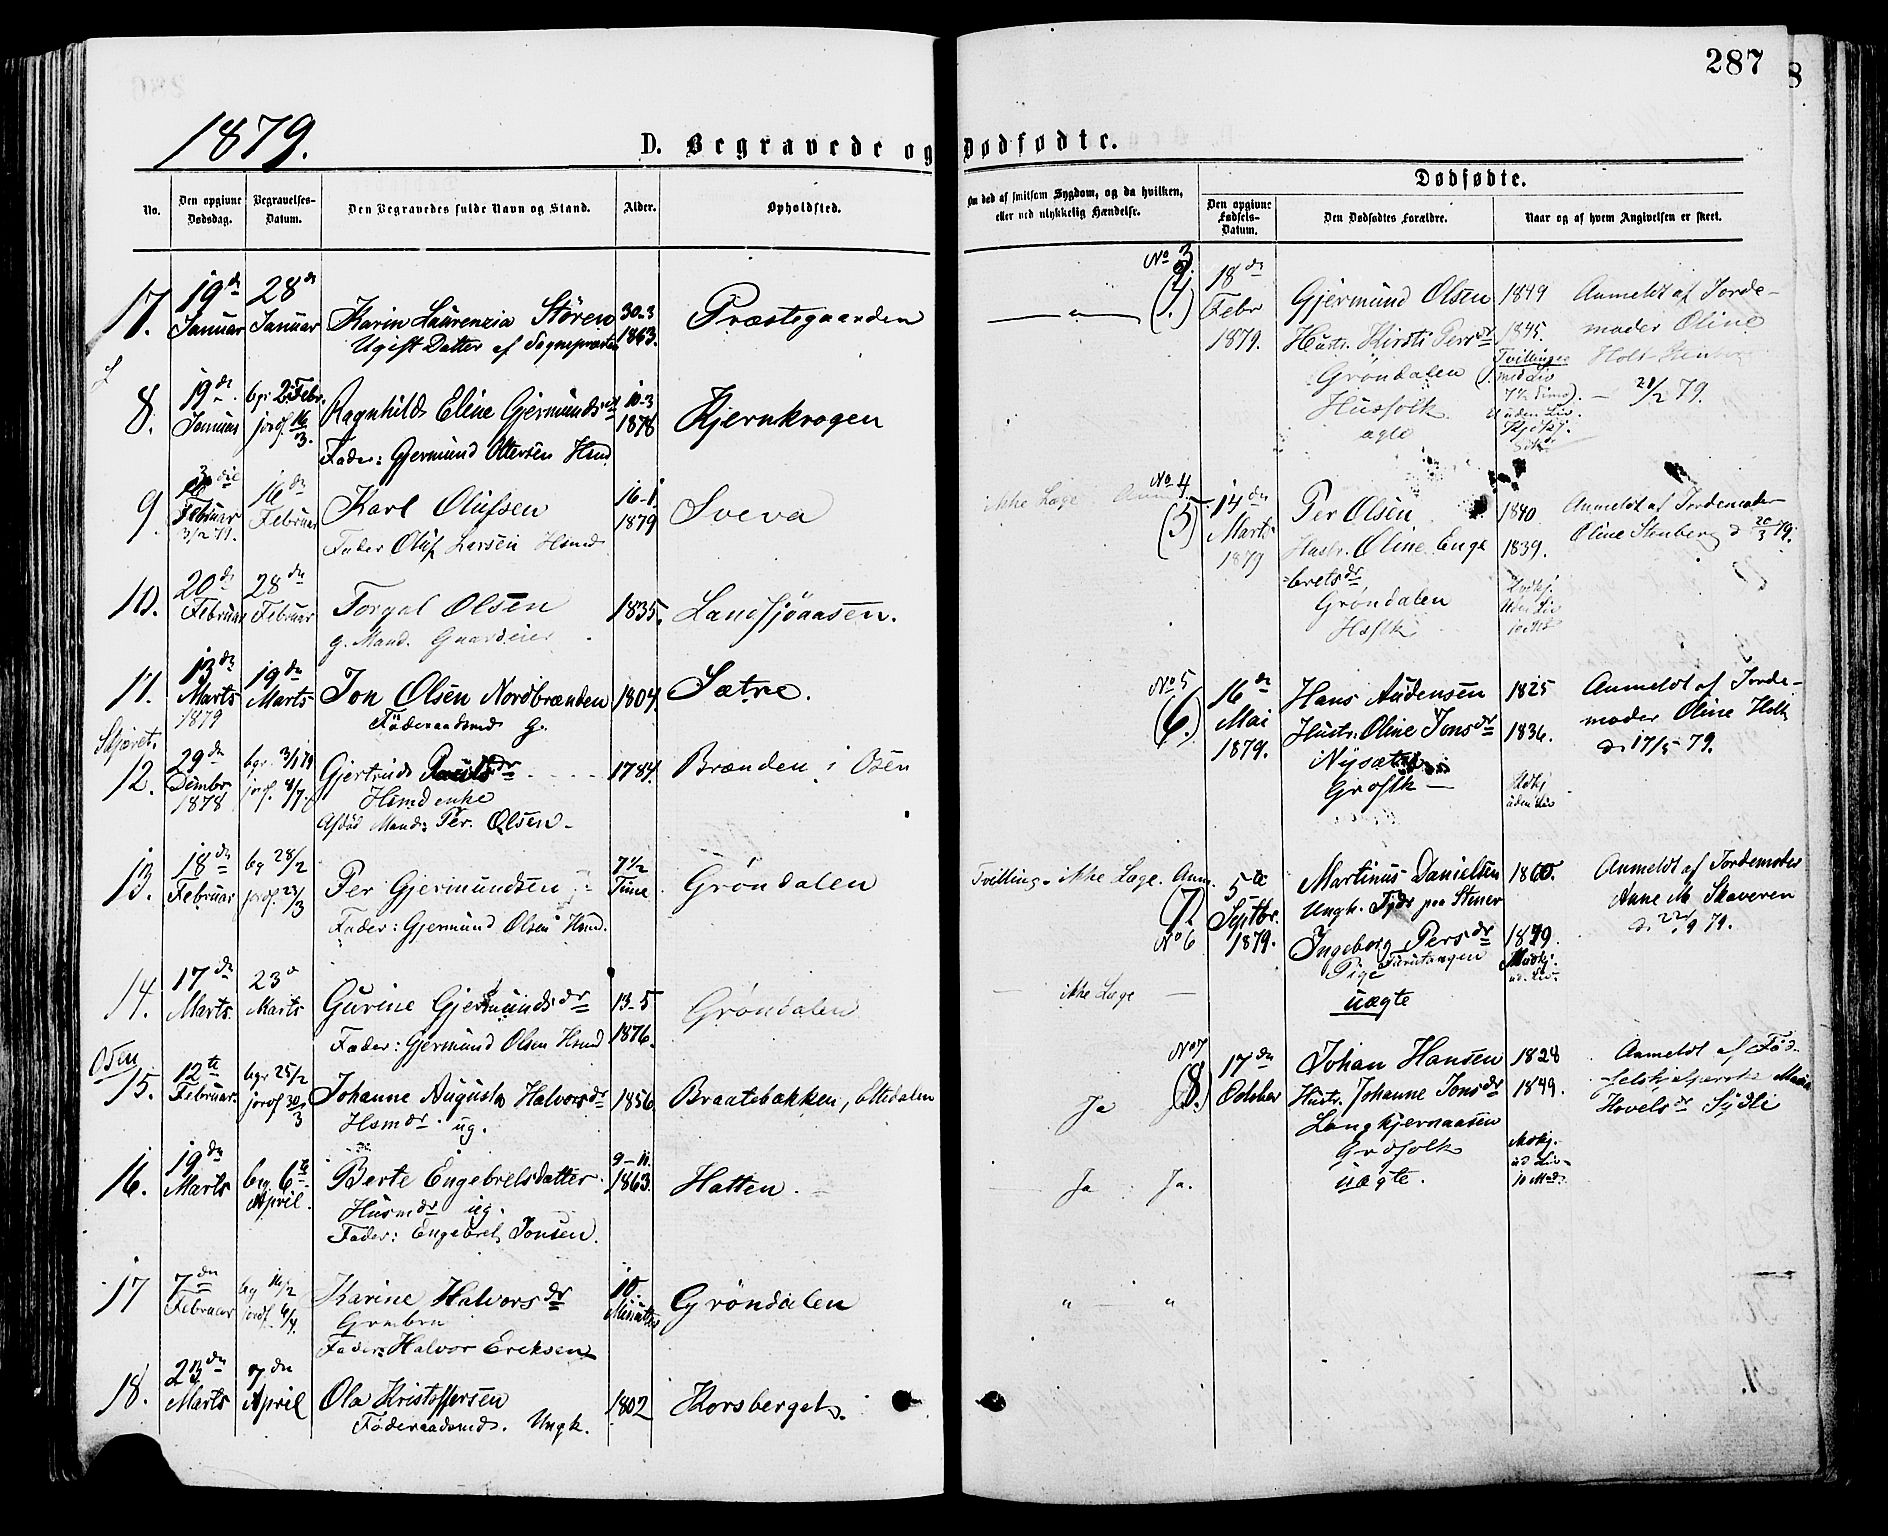 287
1879.
D. Begravede og Dødfødte.
No.
Den opgivne Dødsdag.
Begravelses-Datum.
Den Begravedes fulde Navn og Stand.
Alder.
Opholdsted.
Om død af smitsom Sygdom, og da hvilken, eller ved ulykkelig Hændelse.
Dødfødte.
Den opgivne Fødsels-Datum.
Den Dødfødtes Forældre.
Naar og af hvem Angivelsen er skeet.
19de Januar
28de Januar
Karin Laurenzia Stören
Ugift Datter af Sognepræsten
30-3 1863.
Præstegaarden
8. 19de Januar
bgr 2 Febr. jordf. 16/3.
Ragnhild Eline Gjermundsdr
Fader: Gjermund Ottersen Hsmd
10-3 1878
Kjernkrogen
9. Februar 3/2 79.
16de Februar
Karl Olufsen
Fader Oluf Larsen Hsmd
16-1 1879
Sveva
10. 20de Februar
28de Februar
Torgal Olsen
g. Mand. Gaardeier
1835.
Landsjöaasen.
11. 13de Marts 1879
19de Marts
Jon Olsen Nordbrænden
Föderaadsmd g.
1804.
Sætre.
Skjæret.
12. 29de Dcmbr 1878
bgr. 3/1 79
Gjertrud
Hsmd enke
Afdöd Mand: Per. Olsen.
1784.
Brænden i Osen
13. 18de Februar
bg 28/2 jordf. 23/3
Per Gjermundsen
Fader: Gjermund Olsen Hsmd.
7 1/2 Time
Gröndalen
14. 17de Marts
23d Marts
Gurine Gjermundsdr
Fader: Gjermund Olsen Hsmd
13-5 1876.
Gröndalen
Osen
15. 12te Februar
bgr 25/2 jordf 30/3
Johanne Augusta Halvorsdr
Hsmdr. ug.
1856.
Braatebakken, Ottedalen
16. 19de Marts
beg. 6te April.
Berte Engebretsdatter
Husmdr ug.
Fader: Engebret Jonsen.
9-11. 1863.
Hatten.
17 7de Februar
bg 16/2 jordf 6/4.
Karine Halvorsdr
Fader: Halvor Ereksen
10 Minutter
Gröndalen
18. 23de Marts
7de April
Ola Kristoffersen
Föderaadsmd. Ungk.
1802
Korsberget.
No 3
18de Febr 1879.
Gjermund Olsen 1849
Hustr. Kirsti Persdr 1845.
Gröndalen
Husfolk
ægte
Tvillinger
Anmeldt af Jordemoder Oline
21/2 79.
ikke Læge
No 4
(5) 14de Marts 1879
Per Olsen 1840
Hustr. Oline Engebretsdr 1839.
Gröndalen
Hsflk
Anmeldt af Jordemoder
Oline Stenberg d 20/3 79.
No 5
(6.) 16de Mai 1879.
Hans Audensen 1825
Hustr. Oline Jonsdr 1836.
Nysætre
uden Liv
Anmeldt af Jordemoder Oline Holt
d. 17/5 79.
Tvilling. ikke Læge. Anm.
7. No 6
5te Septbr. 1879.
Martinus Danielsen
Ungk.
Ingeborg Persdr
Pige Furutangen
uægte
Anmeldt af Jordemoder
Anne M. Skaveren
ikke Læge
No 7
(8.) 17de October
Johan Hansen 1828
Hustr. Johanne Jonsdr 1849.
Langkjernaasen
Grdfolk
uægte.
ud Liv
Anmeldt af
Ja
Ja Ja.